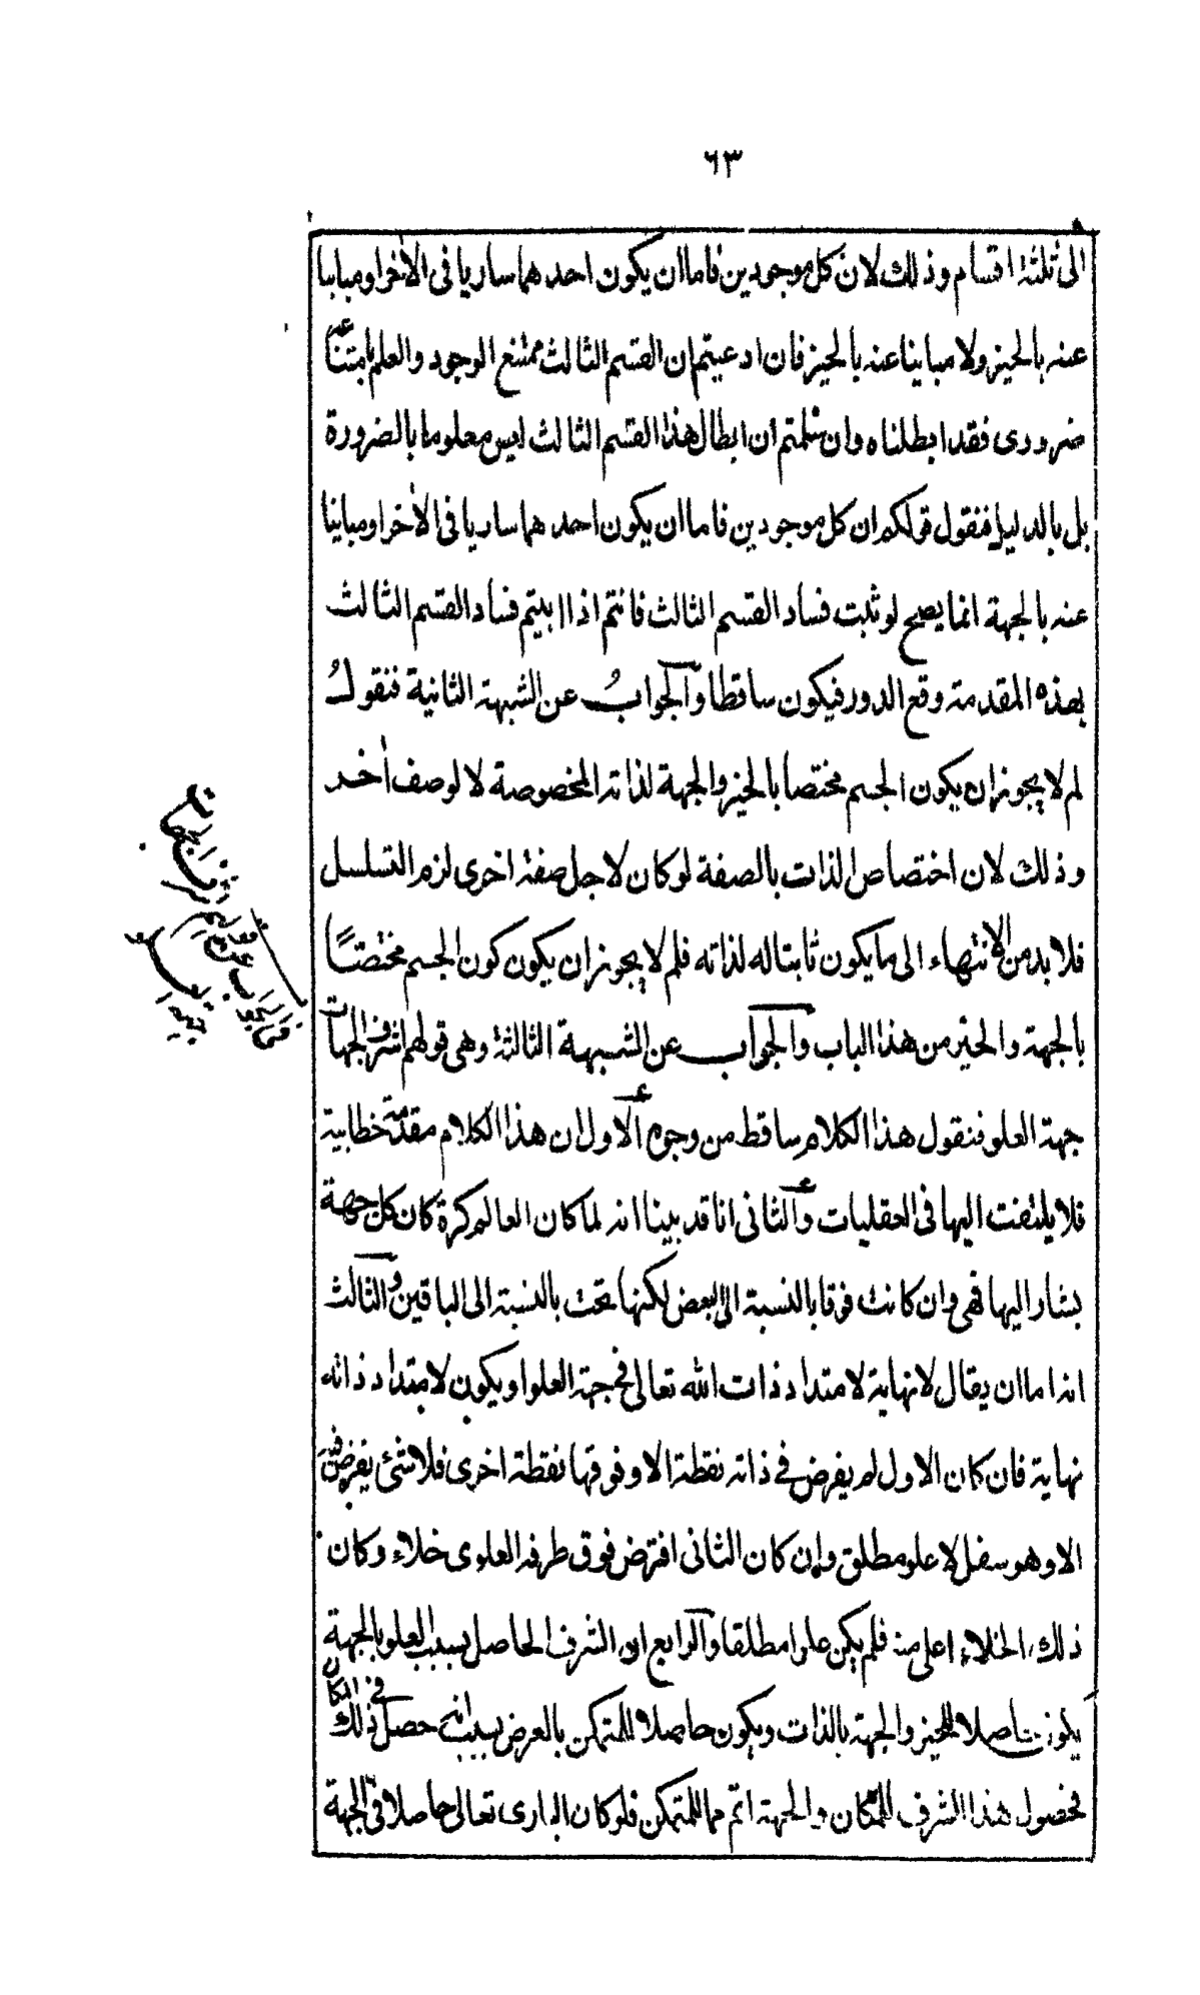 ٦٣
الى ثلثة اقسام وذلك لان كل موجودين فاما ان يكون احدهما ساريا فى الاخر او مباينا
عنه بالحيز ولا مباينا عنه بالحيز فان ادعيتم ان القسم الثالث ممتنع الوجود والعلم بامتناعه
ضرورى فقد ابطلناه وان سلمتم ان ابطال هذا القسم الثالث ليس معلوما بالضرورة
بل بالدليل فنقول قولكم ان كل موجودين فاما ان يكون احدهما ساريا فى الاخر او مباينا
عنه بالجهة انما يصح لو ثبت فساد القسم الثالث فانتم اذا اثبتم فساد القسم الثالث
بهذه المقدمة وقع الدور فيكون ساقطا والجواب عن الشبهة الثانية فنقول
لم لا يجوز ان يكون الجسم مختصا بالحيز والجهة لذاته المخصوصة لا لوصف أخر
وذلك لان اختصاص الذات بالصفة لو كان لاجل صفة اخرى لزم التسلسل
فلا بد من الانتهاء الى ما يكون ثابتا له لذاته فلم لا يجوز ان يكون كون الجسم مختصًا
بالجهة والحيز من هذا الباب والجواب عن الشبهة الثالثة وهى قولهم اشرف الجهات
جهة العلو فنقول هذا الكلام ساقط من وجوه الاول ان هذا الكلام مقدمة خطابية
فلا يلتفت اليها فى العقليات والثانى انا قد بينا انه لما كان العالم كرة كان كل جهة
يشار اليها فهى وان كانت فوقا بالنسبة الى البعض لكنها تحت بالنسبة الى الباقين والثالث
انه اما ان يقال لا نهاية لامتداد ذات الله تعالى فى جهة العلو او يكون لامتداد ذاته
نهاية فان كان الاول لم يفرض فى ذاته نقطة الا وفوقها نقطة اخرى فلا شئ يفرض فيه
الا وهو سفل لا علو مطلق وان كان الثانى افترض فوق طرفه العلوى خلاء وكان
ذلك الخلاء اعلى منه فلم يكن علوا مطلقا والرابع ان الشرف الحاصل بسبب العلو بالجهة
يكون حاصلا للحيز والجهة بالذات ويكون حاصلا للمتمكن بالعرض بسبب انه حصل فى ذلك المكان
فحصول هذا الشرف للمكان والجهة اتم مما للمتمكن فلو كان البارى تعالى حاصلا فى الجهة